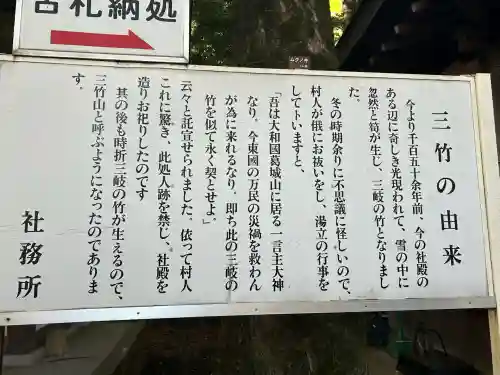 古札納処
ムクノキ
三竹の由来
今より千百五十余年前、今の社殿の
ある辺に奇しき光現われて、雪の中に
忽然と筍が生じ、三岐の竹となりまし
た。
冬の時期余りに不思議に怪しいので、
村人が俄にお祓いをし、湯立の行事を
して卜いますと、
「吾は大和國葛城山に居る一言主大神
なり。今東國の万民の災禍を救わん
が為に来れるなり。即ち此の三岐の
竹を似て永く契とせよ。」
云々と託宣せられました。依って村人
これに驚き、此処人跡を禁じ、社殿を
造りお祀りしたのです
其の後も時折三岐の竹が生えるので、
三竹山と呼ぶようになったのでありま
す。
社務所